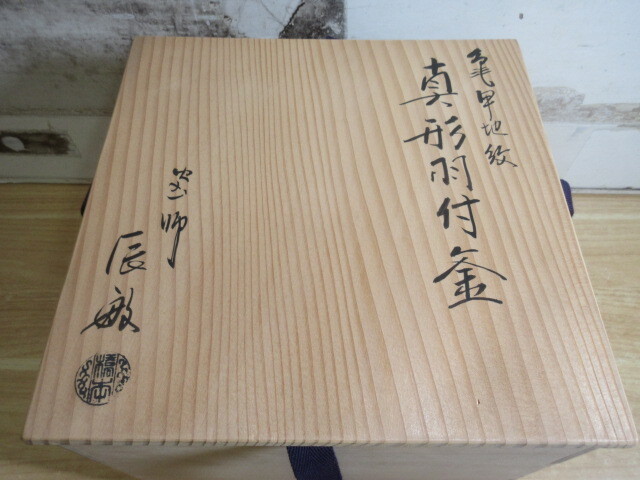 亀甲地紋
真形羽付釜
釜師
辰敏
橋本